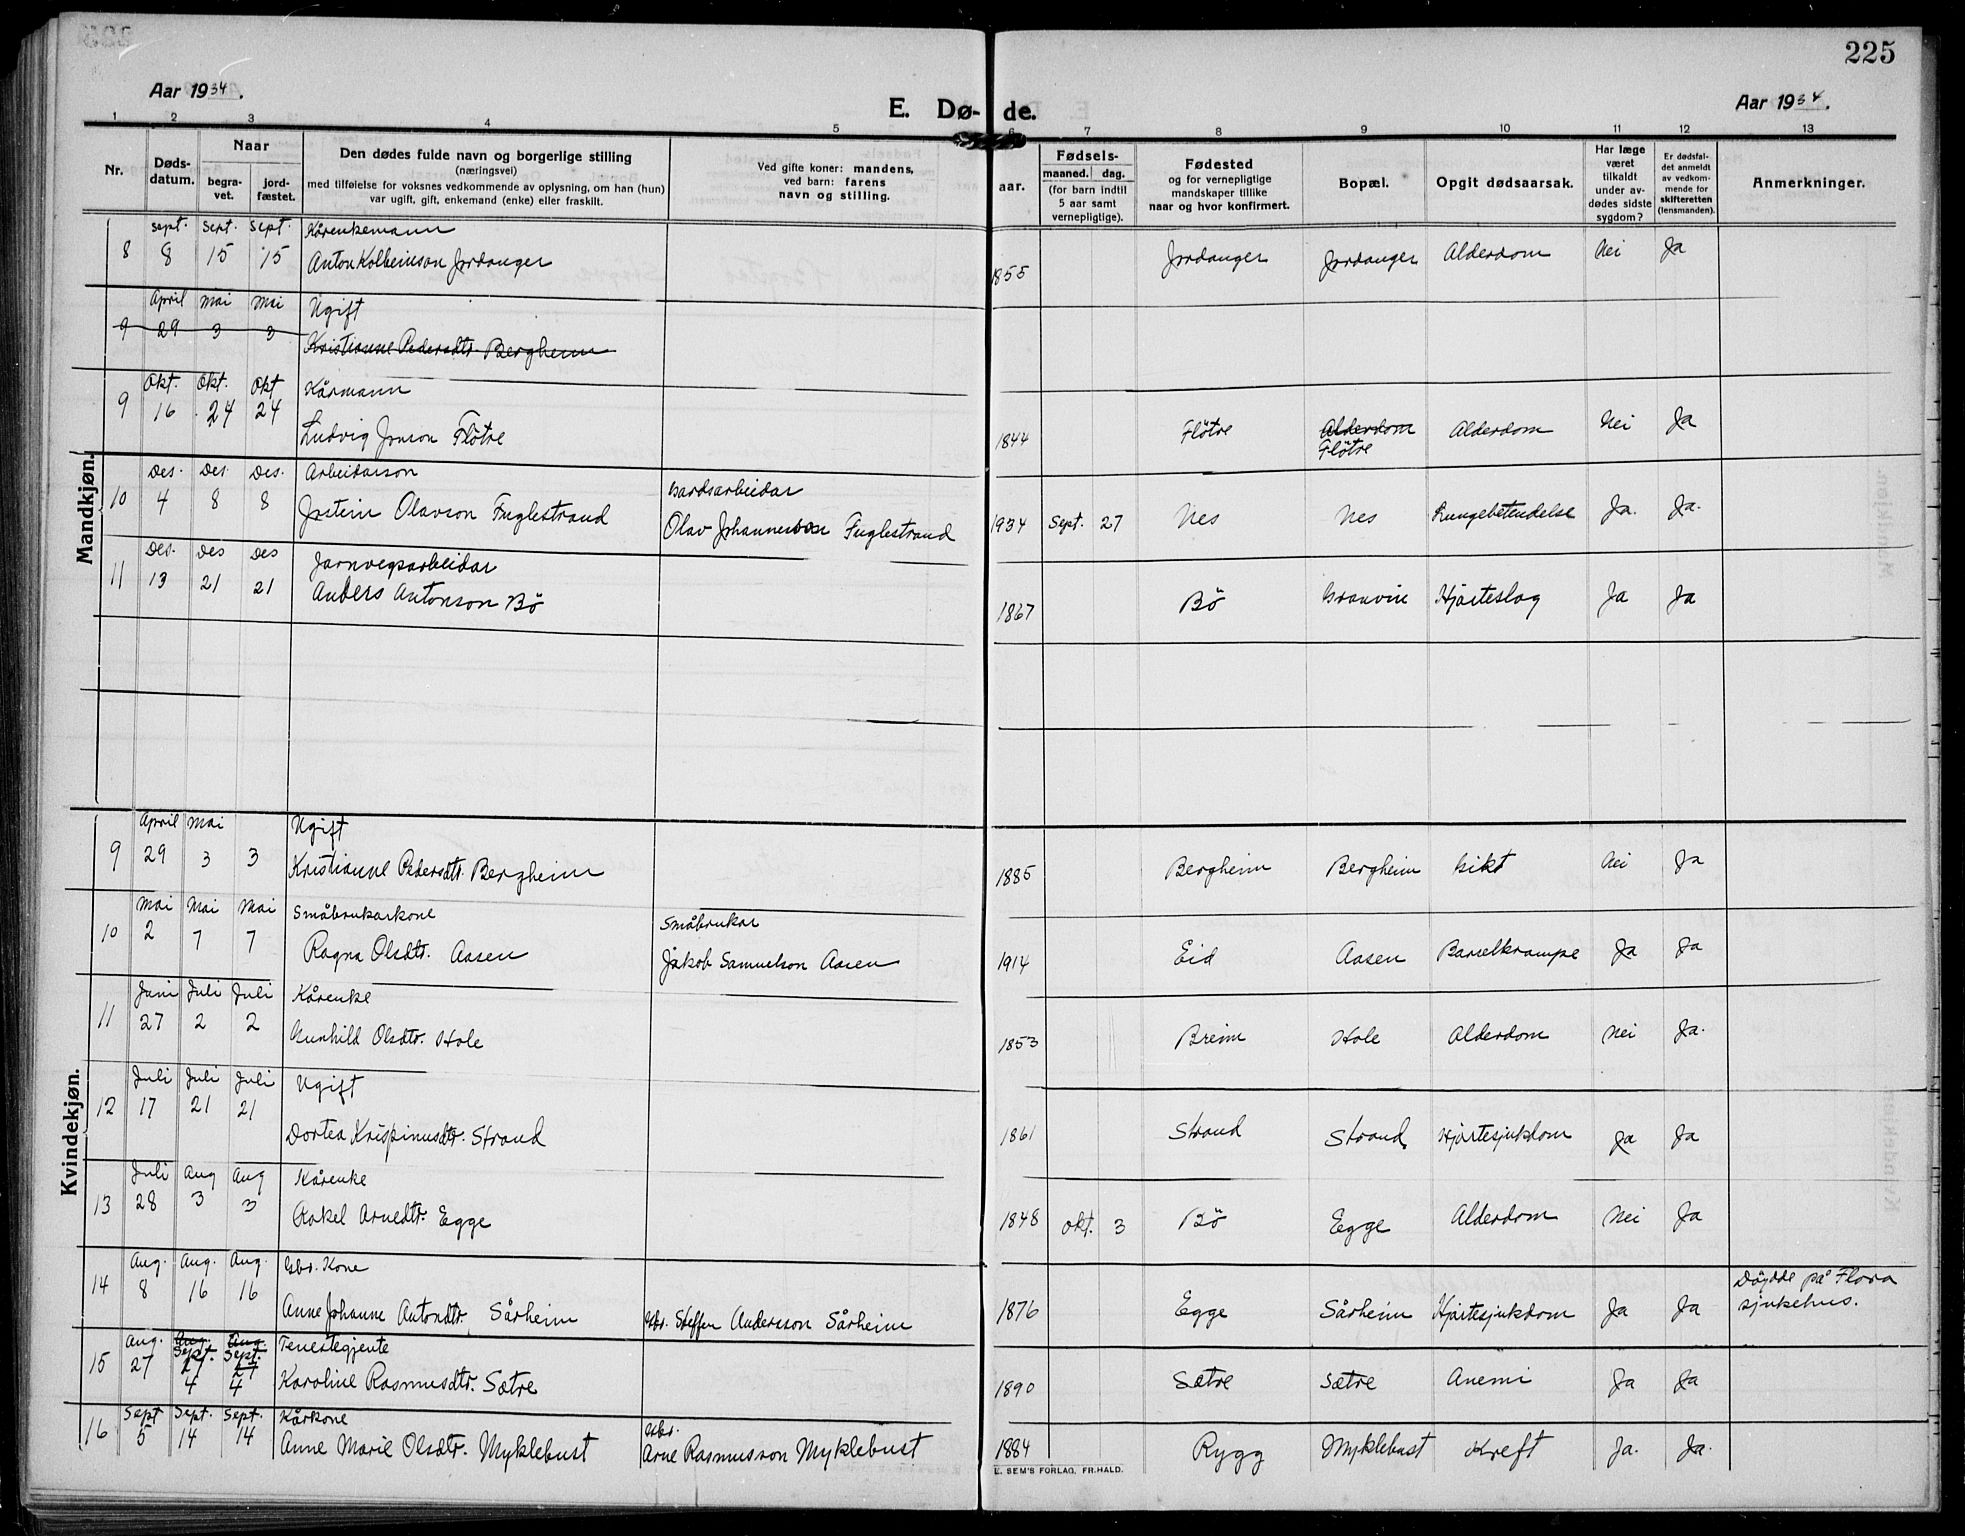 225
Aar 1934.
E. Dø-
de.
Aar 1934.
1 2 3 4 5 6 7 8 9 10 11 12 13
Nr.
Døds-
datum.
Naar
begra-
vet.
jord-
fæstet.
Den dødes fulde navn og borgerlige stilling
(næringsvei)
med tilføielse for voksnes vedkommende av oplysning, om han (hun)
var ugift, gift, enkemand (enke) eller fraskilt.
Ved gifte koner: mandens,
ved barn: farens
navn og stilling.
aar.
Fødsels-
maaned. dag.
(for barn indtil
5 aar samt
vernepligtige).
Fødested
og for vernepligtige
mandskaper tillike
naar og hvor konfirmert.
Bopæl.
Opgit dødsaarsak.
Har læge
været
tilkaldt
under av-
dødes sidste
sygdom?
Er dødsfal-
det anmeldt
av vedkom-
mende for
skifteretten
(lensmanden).
Anmerkninger.
Mandkjøn.
Sept. Sept. Sept. Kårenkemann
8 8 15 15 Anton Kolbeinson Jordanger 1855 Jordanger Jordanger Alderdom Nei Ja
April Mai Mai Ugift
9 29 3 3 Kristianne Pedersdtr. Bergheim
Okt. Okt. Okt Kårmann
9 16 24 24 Ludvig Jonson Fløtre 1844 Fløtre Alderdom Alderdom Nei Ja
Fløtre
Des. Des. Des. Arbeidarson Gardsarbeidar
10 4 8 8 Jostein Olavson Fuglestrand Olav Johannesson Fuglestrand 1934 Sept. 27 Nes Nes Lungebetendelse Ja. Ja.
Des. Des Des Jarnvegsarbeidar
11 13 21 21 Anders Antonson Bø 1867 Bø Granvin Hjarteslag Ja Ja
Kvindekjøn.
April Mai Ugift
9 29 3 3 Kristianne Pedersdtr. Bergheim 1885 Bergheim Bergheim Gikt Nei Ja
Mai Mai Mai Småbrukarkone Småbrukar
10 2 7 7 Ragna Olsdtr. Aasen Jakob Samuelson Aasen 1914 Eid Aasen Barselkrampe Ja Ja
Juni Juli Juli Kårenke
11 27 2 2 Gunhild Olsdtr. Hole 1853 Breim Hole Alderdom Nei Ja.
Juli Juli Juli Ugift
12 17 21 21 Dortea Krispinusdtr. Strand 1861 Strand Strand Hjartesjukdom Ja Ja
Juli Aug Aug Kårenke
13 28 3 3 Rakel Arnedtr. Egge 1848 Okt. 3 Bø Egge Alderdom Nei Ja
Aug. Aug. Aug. Gbr. Kone
14 8 16 16 Anne Johanne Antondtr. Sårheim Gbr. Steffen Andersson Sårheim 1876 Egge Sårheim Hjartesjukdom Ja Ja Døydde på Flora
sjukehus.
Aug. Aug. Aug. Tenestegjente
Sept. Sept.
15 27 27 27 Karoline Rasmusdtr. Sætre 1890 Sætre Sætre Anemi Ja Ja
4 4
Sept Sept. Sept. Kårkone Gbr.
16 5 14 14 Anne Marie Olsdtr. Myklebust Arne Rasmusson Myklebust 1884 Rygg Myklebust Kreft Ja. Ja.
E. SEM'S FORLAG, FR.HALD.